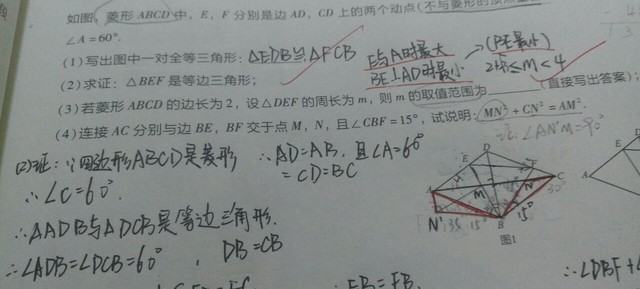 如图,菱形 ABCD 中,E,F 分别是边 AD,CD 上的两个动点(不与菱形的顶点
∠A=60°.
(1)写出图中一对全等三角形:△EDB≌△FCB
E与A时最大
BE⊥AD时最小
(BE最小)
2+√3≤m<4
(2)求证:△BEF 是等边三角形;
(3)若菱形 ABCD 的边长为 2,设△DEF 的周长为 m,则 m 的取值范围为 (直接写出答案);
(4)连接 AC 分别与边 BE,BF 交于点 M,N,且∠CBF=15°,试说明:MN²+CN²=AM².
证:∠AN'M=90°
(2)证:∵四边形ABCD是菱形 ∴AD=AB,且∠A=60°
=CD=BC
∴∠C=60°
∴△ADB与△DCB是等边三角形.
∴∠ADB=∠DCB=60°, DB=CB
EB=FB.
∴∠DBF+∠
D
E
F
A
M
N
C
30°
N'
15°
B
15°
图1
A